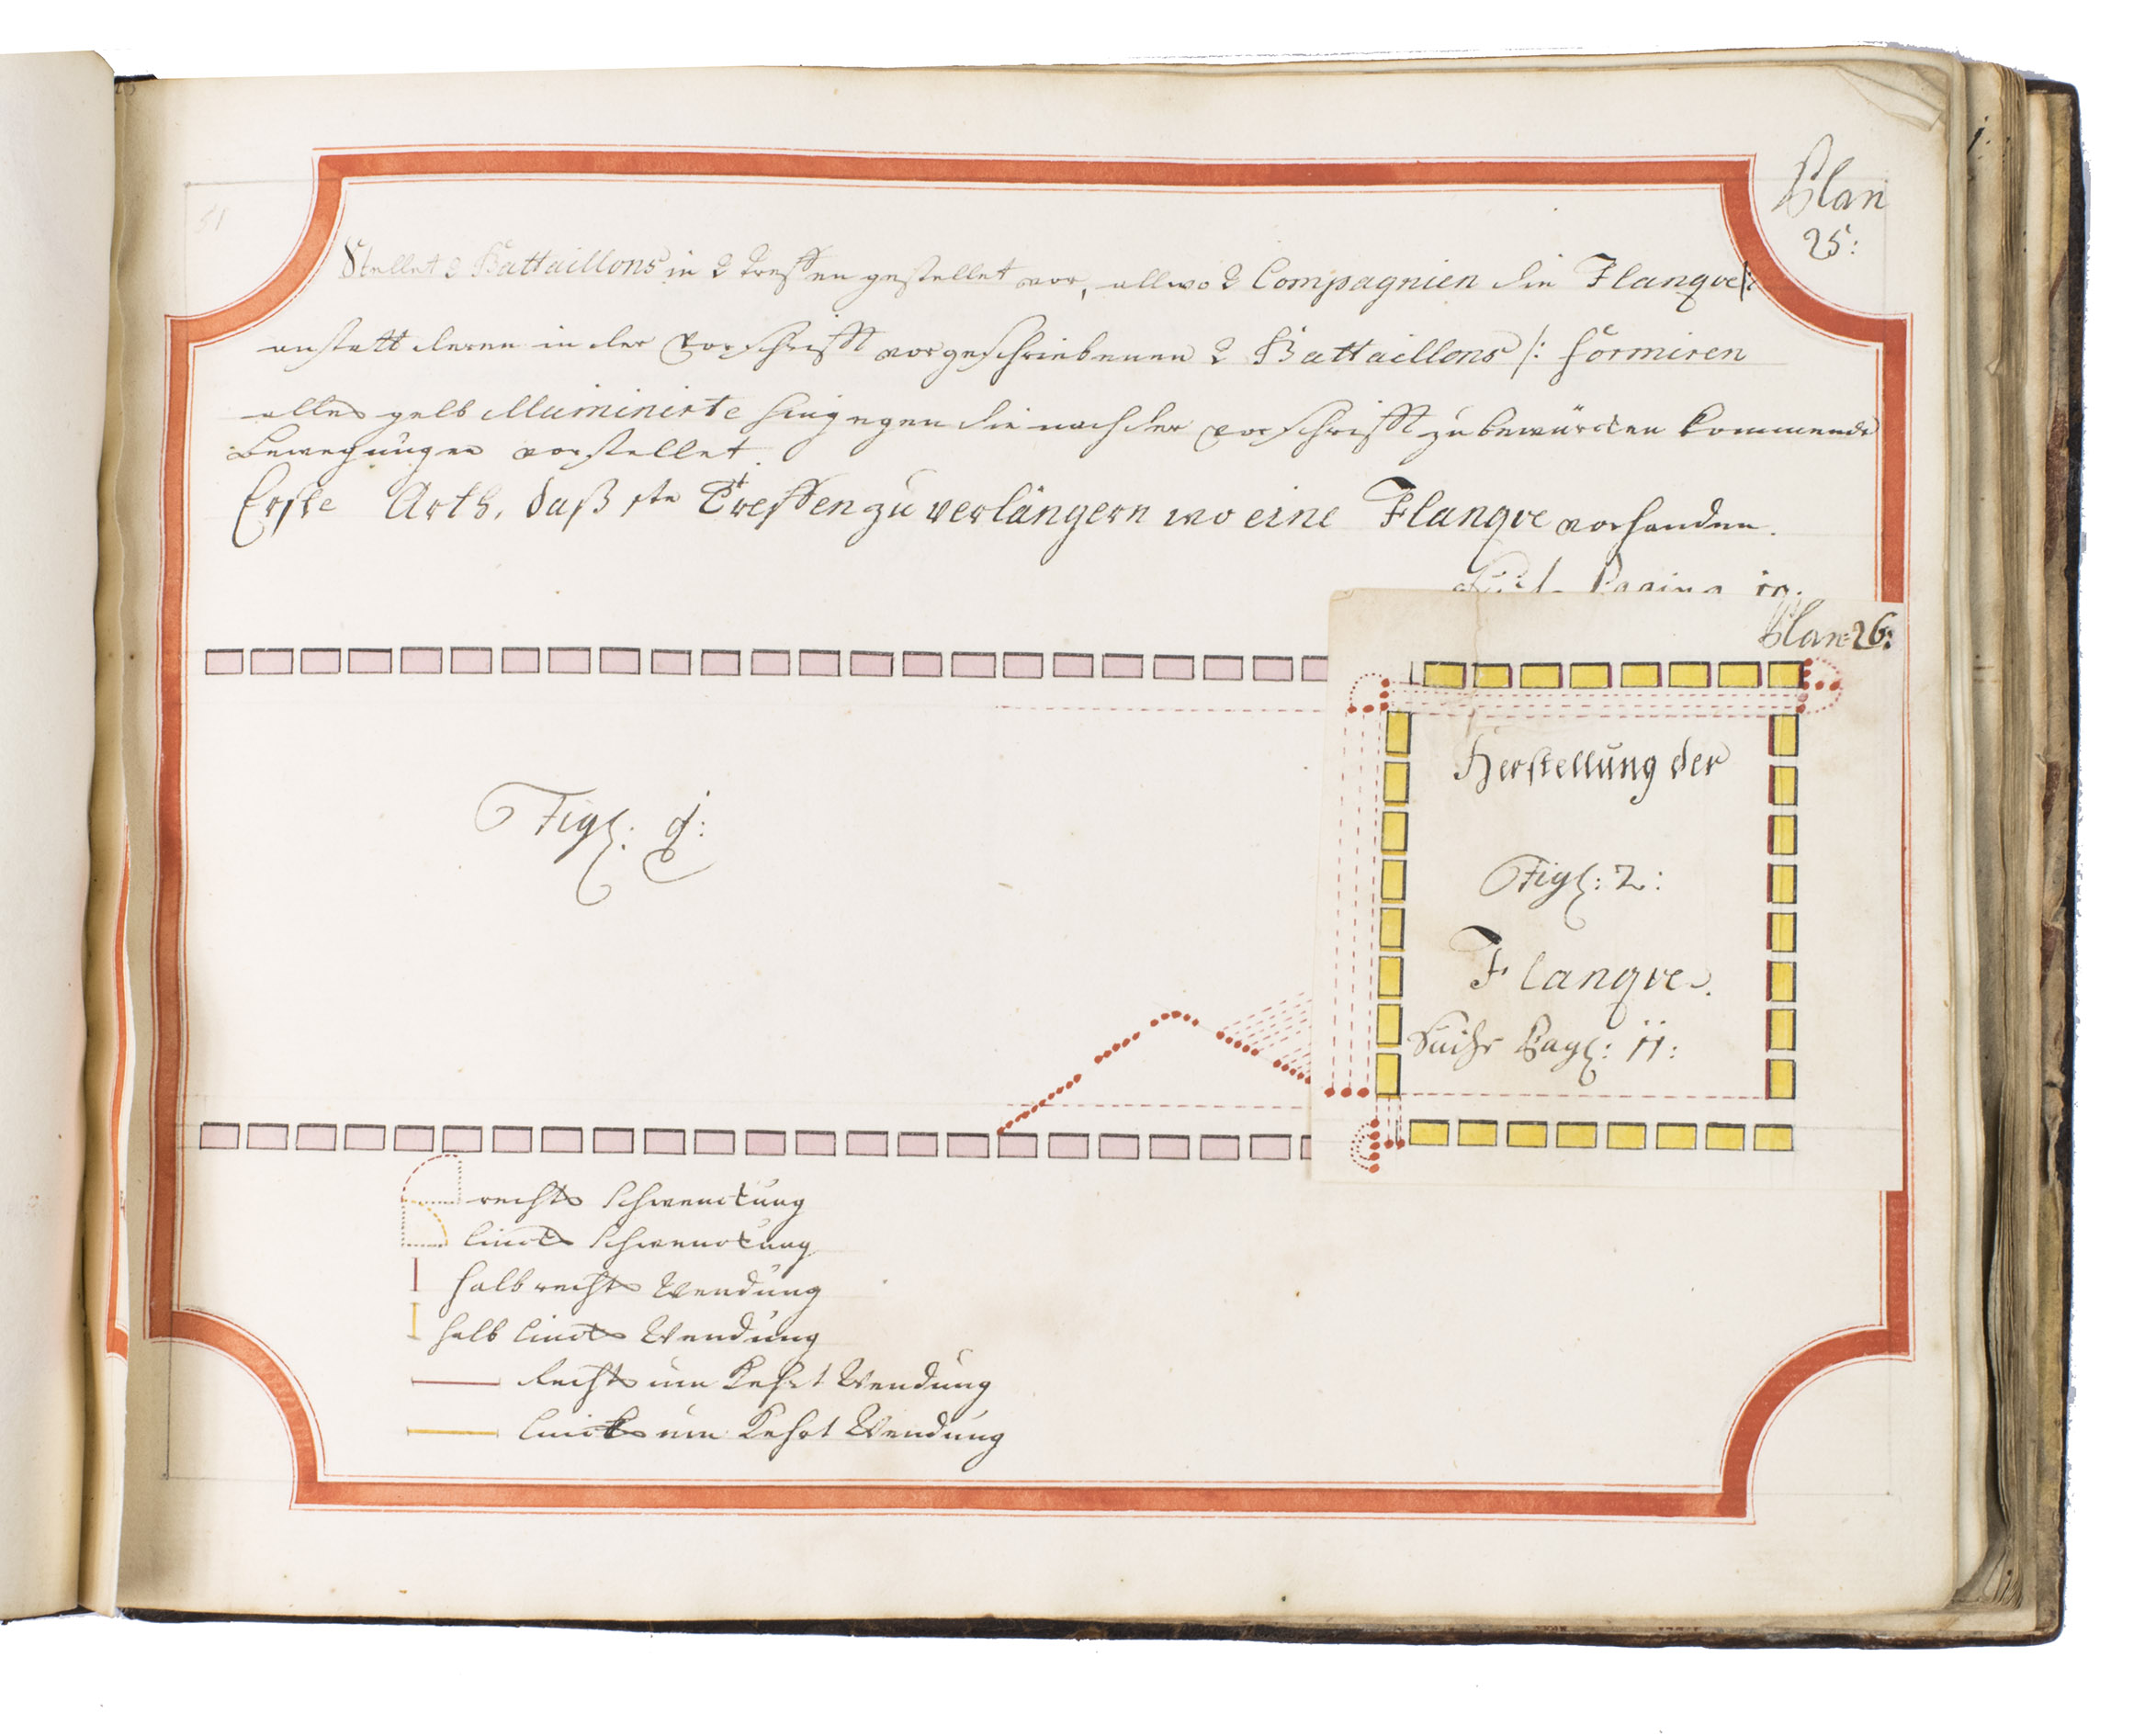 51
Plan
25:
Stellet 2 Battaillons in 2 Treffen gestellet vor, allwo 2 Compagnien die Flanque /:
anstatt deren in der Vorschrifft vorgeschriebenen 2 Battaillons /: formiren
alles gelb Illuminirte hingegen die nach der Vorschrifft zu bewürcken kommende
Bewegungen vorstellet.
Erste Arth, daß 1te Treffen zu verlängern wo eine Flanque vorhanden.
Plan: 26:
Herstellung der
Figl: 1:
Figl: 2:
Flanque.
Siehe Pagl: 11:
rechts Schwenckung
lincks Schwenckung
halb rechts Wendung
halb lincks Wendung
Rechts um Kehrt Wendung
lincks um Kehrt Wendung